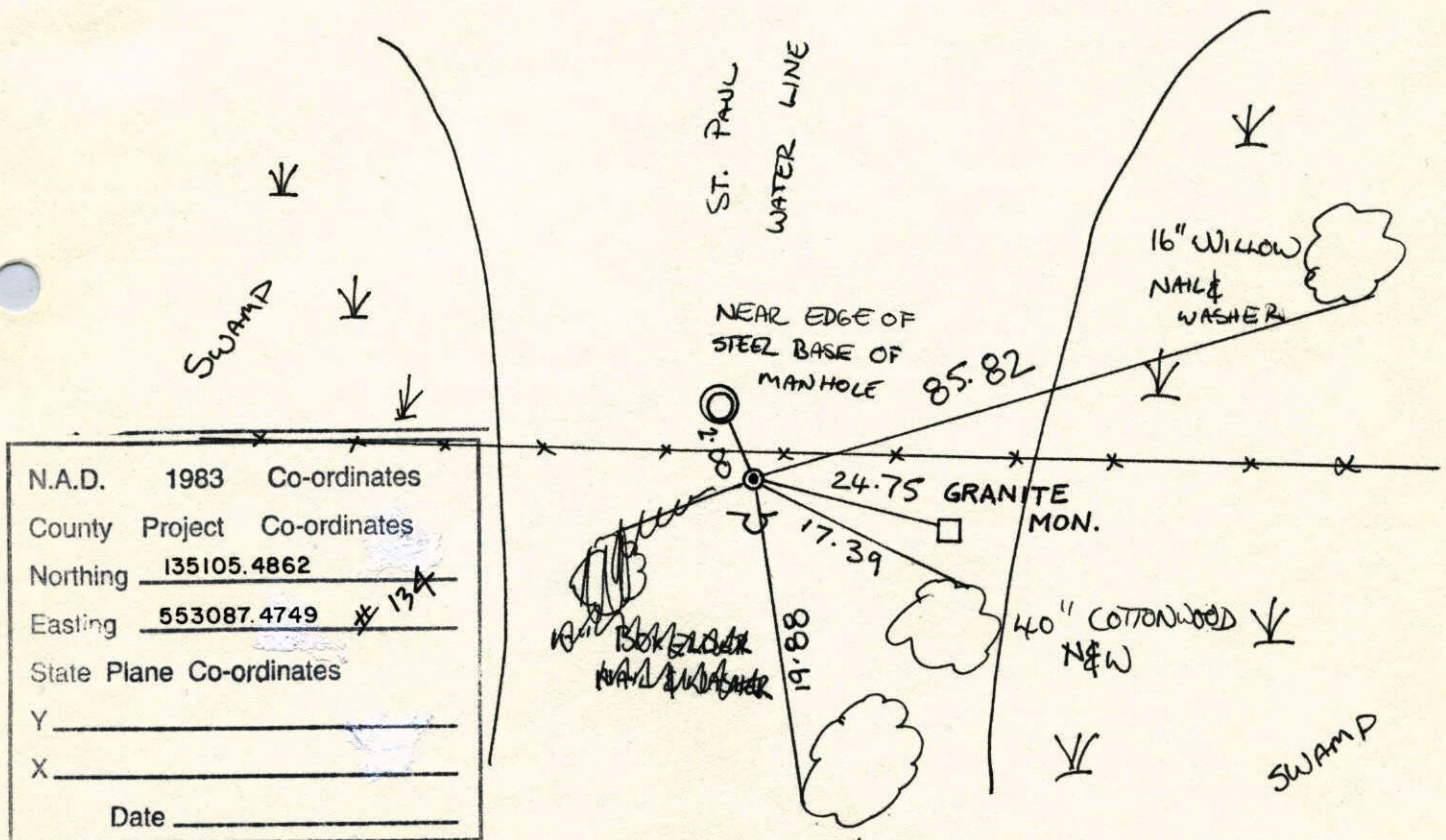 ST. PAUL
WATER LINE
16" WILLOW
NAIL &
WASHER
SWAMP
NEAR EDGE OF
STEEL BASE OF
MANHOLE
85.82
24.75 GRANITE
MON.
17.39
19.88
40" COTTONWOOD
N&W
SWAMP
N.A.D. 1983 Co-ordinates
County Project Co-ordinates
Northing 135105.4862
Easting 553087.4749 # 134
State Plane Co-ordinates
Y
X
Date